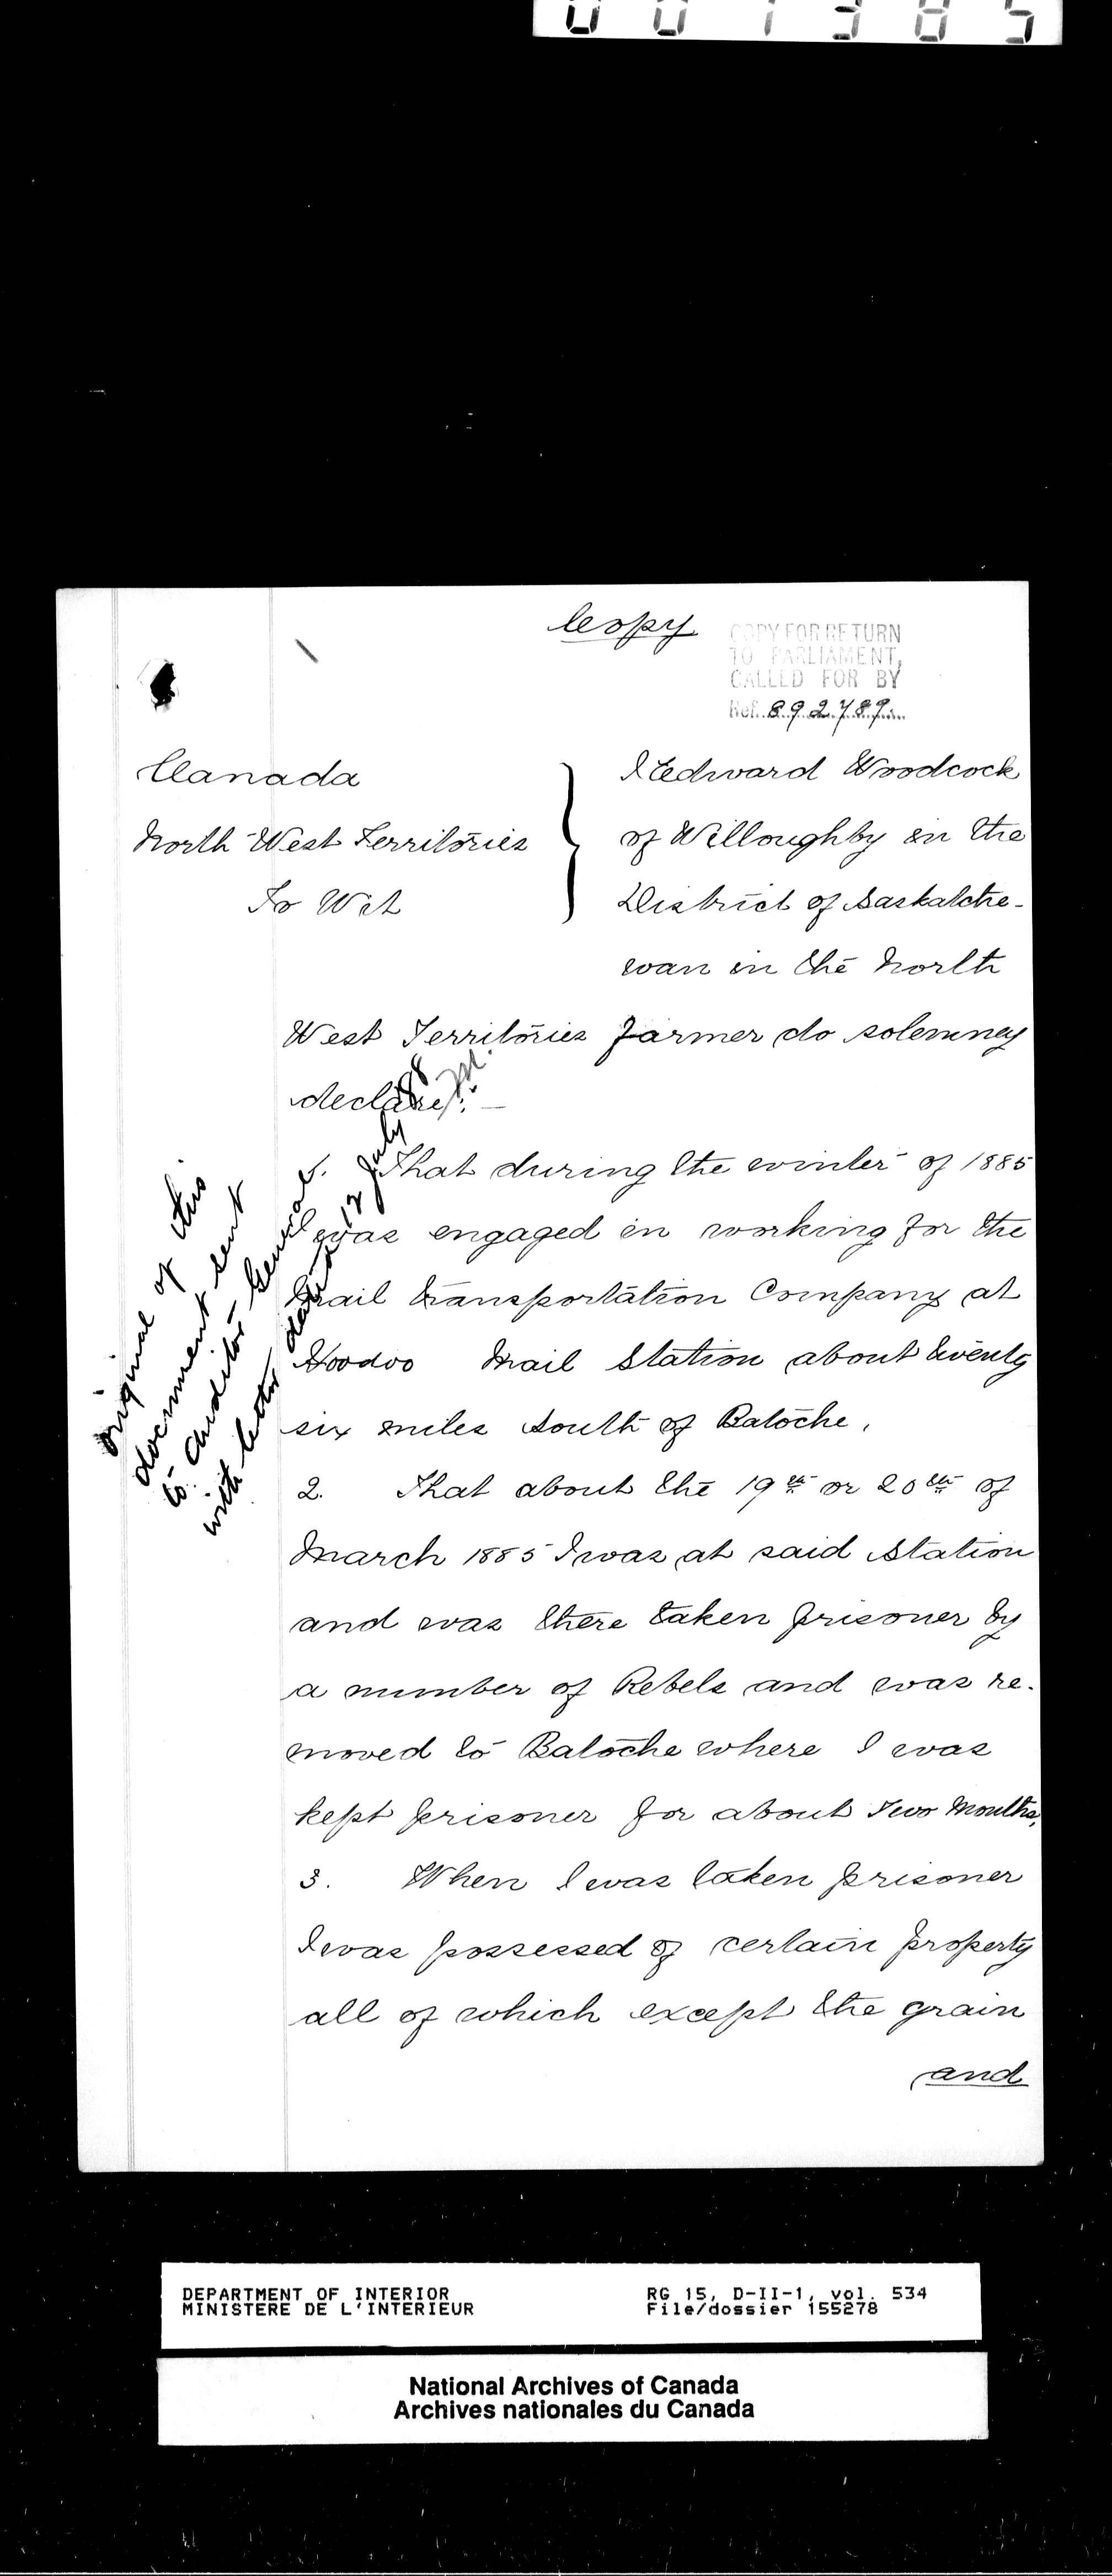 001385
Copy
COPY FOR RETURN
TO PARLIAMENT,
CALLED FOR BY
Ref. 892789
Canada
North West Territories
To Wit
I Edward Woodcock
of Willoughby in the
District of Saskatche-
wan in the North
West Territories farmer do solemney
declare:—
1. That during the winter of 1885
I was engaged in working for the
Mail transportation Company at
Hoodoo Mail Station about twenty
six miles South of Batoche,
2. That about the 19th or 20th of
March 1885 I was at said Station
and was there taken prisoner by
a number of Rebels and was re-
moved to Batoche where I was
kept prisoner for about Two Months,
3. When I was taken prisoner
I was possessed of certain property
all of which except the grain
and
original of this
document sent
to Auditor General
with letter dated 12 July 88
DEPARTMENT OF INTERIOR
MINISTERE DE L'INTERIEUR
RG 15, D-II-1, vol. 534
File/dossier 155278
National Archives of Canada
Archives nationales du Canada